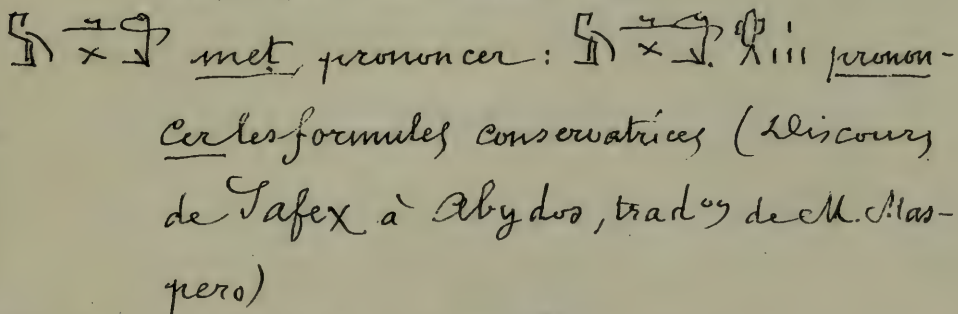 met, prononcer : iii pronon-
cer les formules conservatrices (Discours
de Safex à Abydos, trad on de M. Mas-
pero)